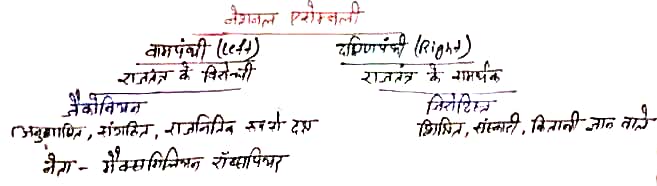 नेशनल एसेम्बली
वामपंथी (Left) दक्षिणपंथी (Right)
राजतंत्र के विरोधी राजतंत्र के समर्थक
जैकोबियन जिरोंदिस्त
(अनुशासित, संगठित, राजनितिक रूप से दक्ष शिक्षित, संस्कारी, किताबी ज्ञान वाले
नेता - मैक्समिलियन रॉब्सपियर